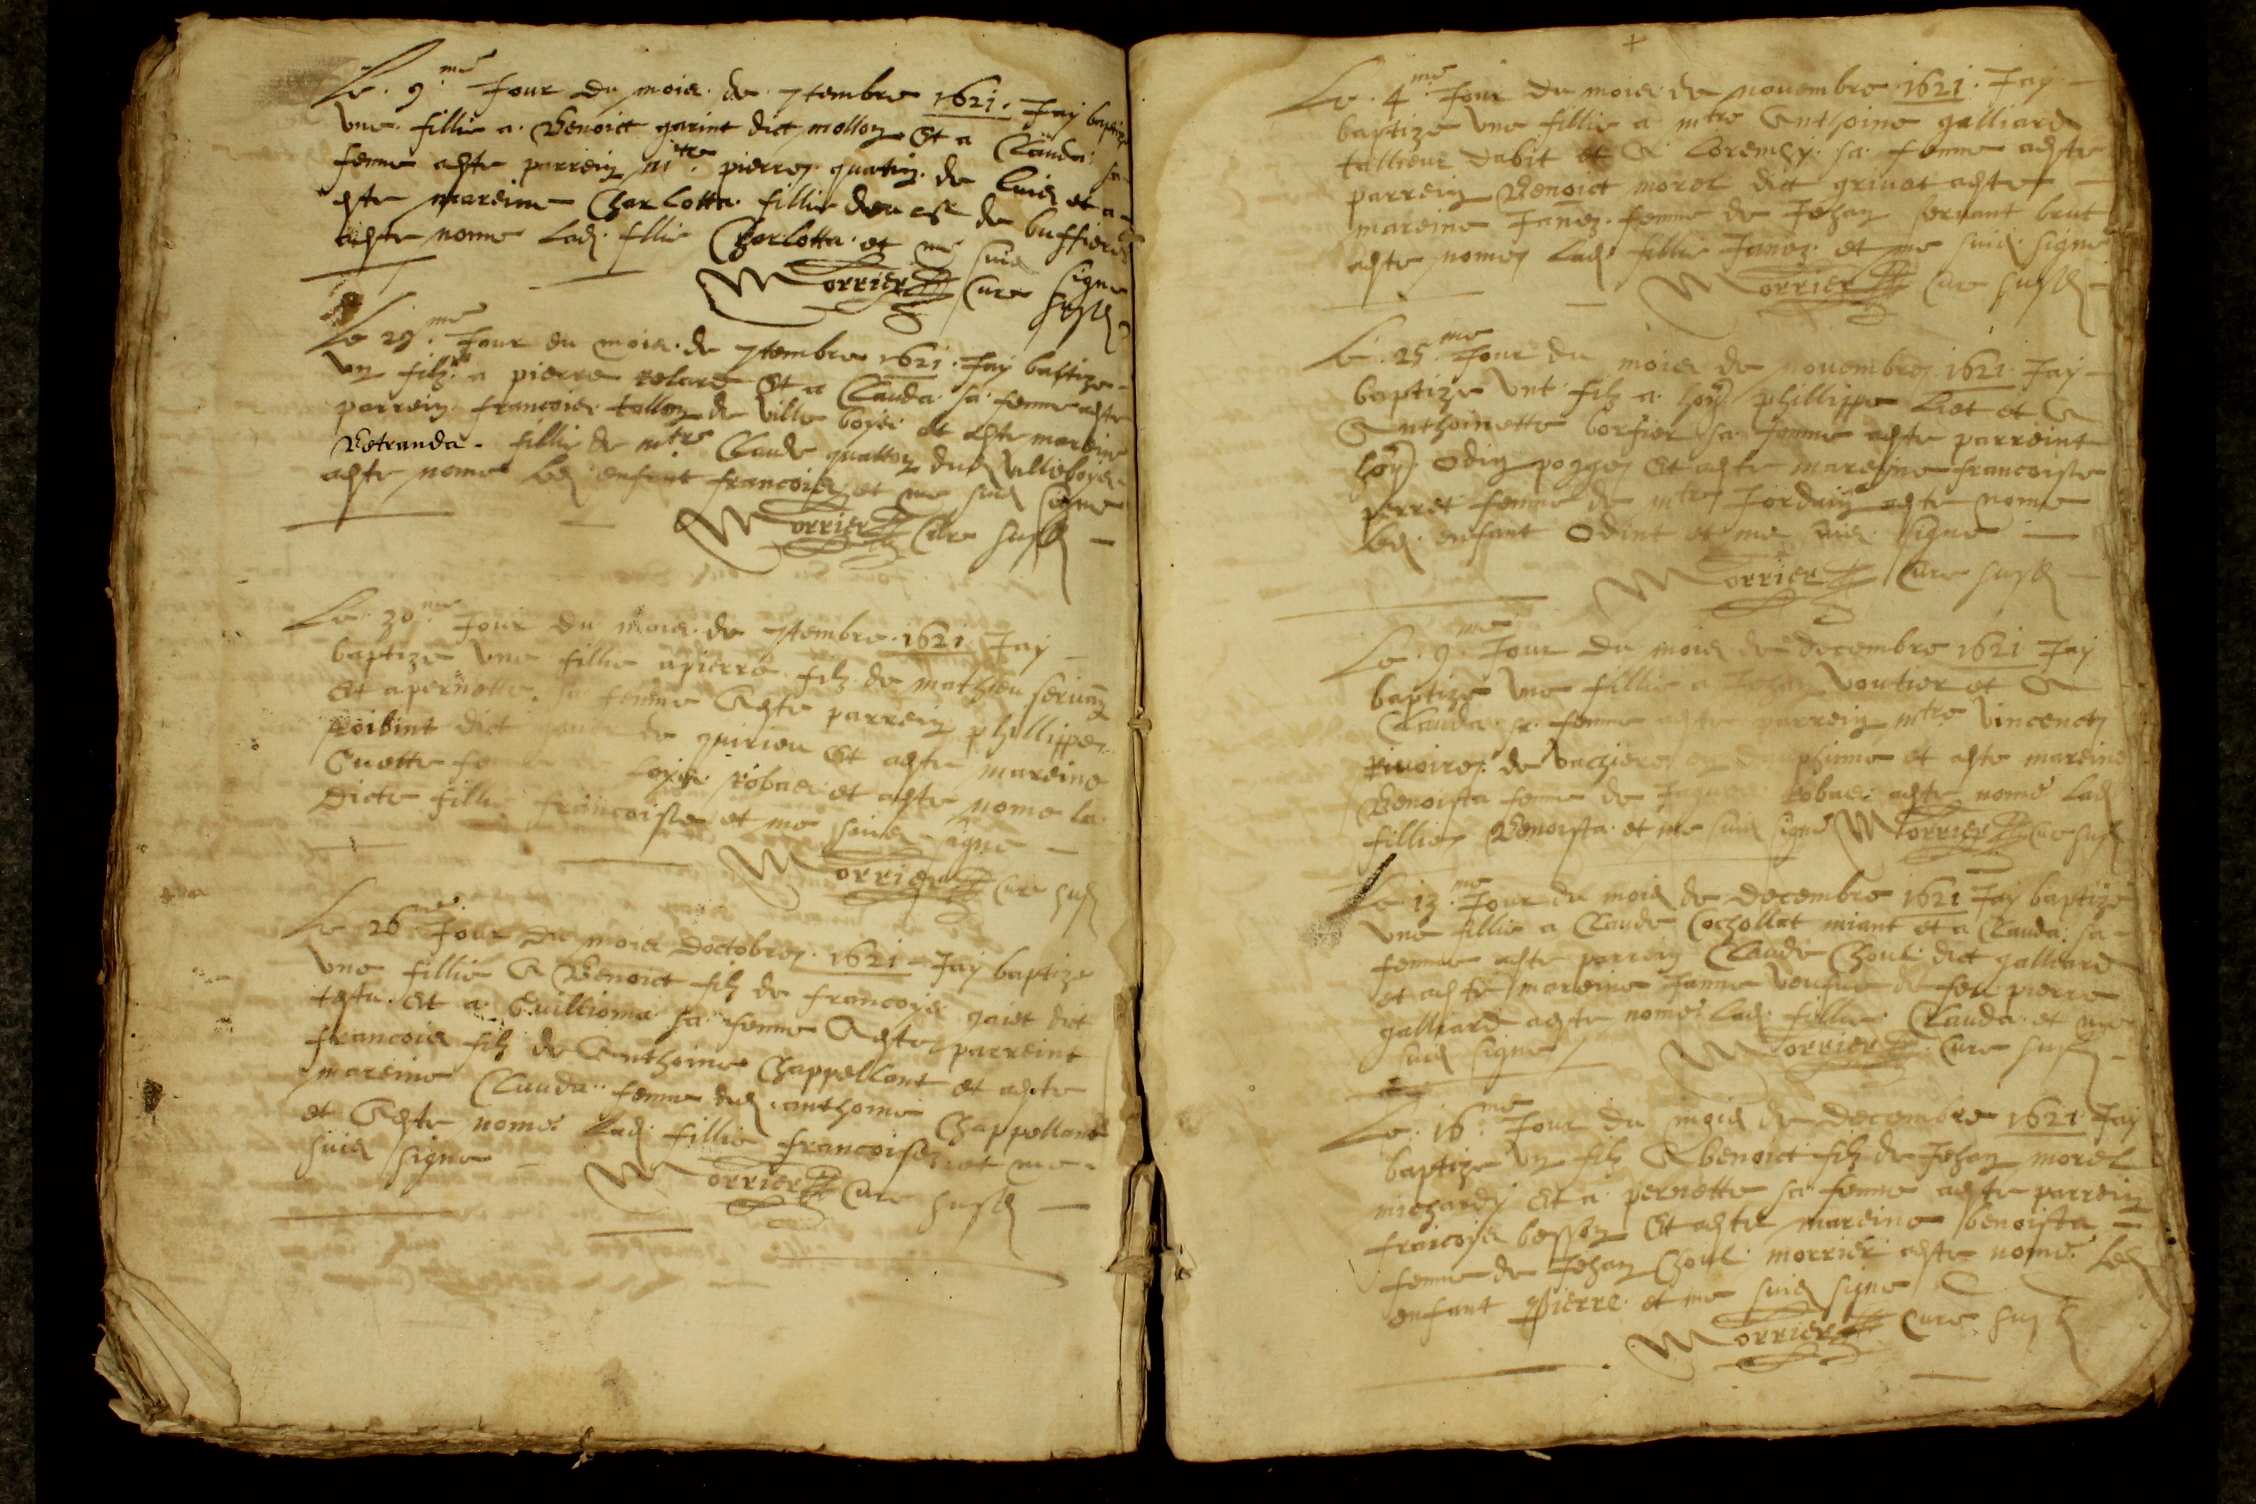 Le 9.me Jour du mois de 7tembre 1621. Jay baptize
une fillie a Benoict garint dict mollon Et a Clauda sa
femme a este parrein mtre pierre quatin de Luis et a
este mareine Charlotta fillie de de buffieres
a este nome lad. fillie Charlotta et me suis signe
Morrier Cure susd.
Le 29.me Jour du mois de 7tembre 1621. Jay baptize
un filz a pierre relare Et a Clauda sa femme a este
parrein francois tollon de ville boys et este mareine
Betranda fillie de mtre Claude quatton dud. villeboys
a este nome led. enfant francois et me suis signe
Morrier Cure susd.
Le 30.me Jour du mois de 7tembre 1621 Jay
baptize une fillie a pierre filz de mathieu servan
Et a pernette sa femme A este parrein phillippe
roibint dict de quirieu Et a este mareine
Guette robas et a este nome la
dicte fillie francoise et me suis signe
Morrier Cure susd.
Le 26.me Jour du mois doctobre 1621 Jay baptize
une fillie A Benoict filz de francoys gaiet dit
testu Et a Guillioma sa femme A este parreint
francois filz de Anthoine Chappellant et a este
mareine Clauda femme dud. anthoine Chappellant
et A este nome lad. fillie francoise et me
suis signe Morrier Cure susd.
Le 4.me Jour du mois de novembre 1621. Jay
baptize une fillie a mtre Anthoine galliard
tallieur dabit et A loremcy sa femme a este
parrein Benoict morel dict grivat a este
mareine Janne femme de Jehan servant brut
a este nome lad. fillie Janne et me suis signe
Morrier Cure susd.
Le 25.me Jour du mois de novembre 1621 Jay
baptize unt filz a hon phillippe Liot et A
Anthoinette borsier sa femme a este parreint
hon Odin pogge Et a este mareyne francoise
perret femme de mtre Jordain a este nome
led. enfant Odint et me suis signe
Morrier Cure susd.
Le 9.me Jour du mois de decembre 1621 Jay
baptize une fillie a Jehan voutier et A
Clauda sa femme a este parrein mtre vincent
rivoire de vachiere en dauphinne et a este mareine
Benoista femme de Jaques robas a este nome lad.
fillie Benoista et me suis signe Morrier Cure susd.
Le 13.me Jour du mois de decembre 1621 Jay baptize
une fillie a Claude Cochollat miant et a Clauda sa
femme a este parrein Claude Choul dict galliard
et a este mareine Janne veufve de feu pierre
galliard a este nome lad. fillie Clauda et me
suis signe Morrier Cure susd.
Le 16.me Jour du mois de decembre 1621 Jay
baptize un filz A benoict filz de Jehan morel
michardy Et a pernette sa femme a este parrein
francoys besson Et a este mareine benoista
femme de Jehan Choul morrier a este nome led.
enfant pierre et me suis signe
Morrier Cure susd.